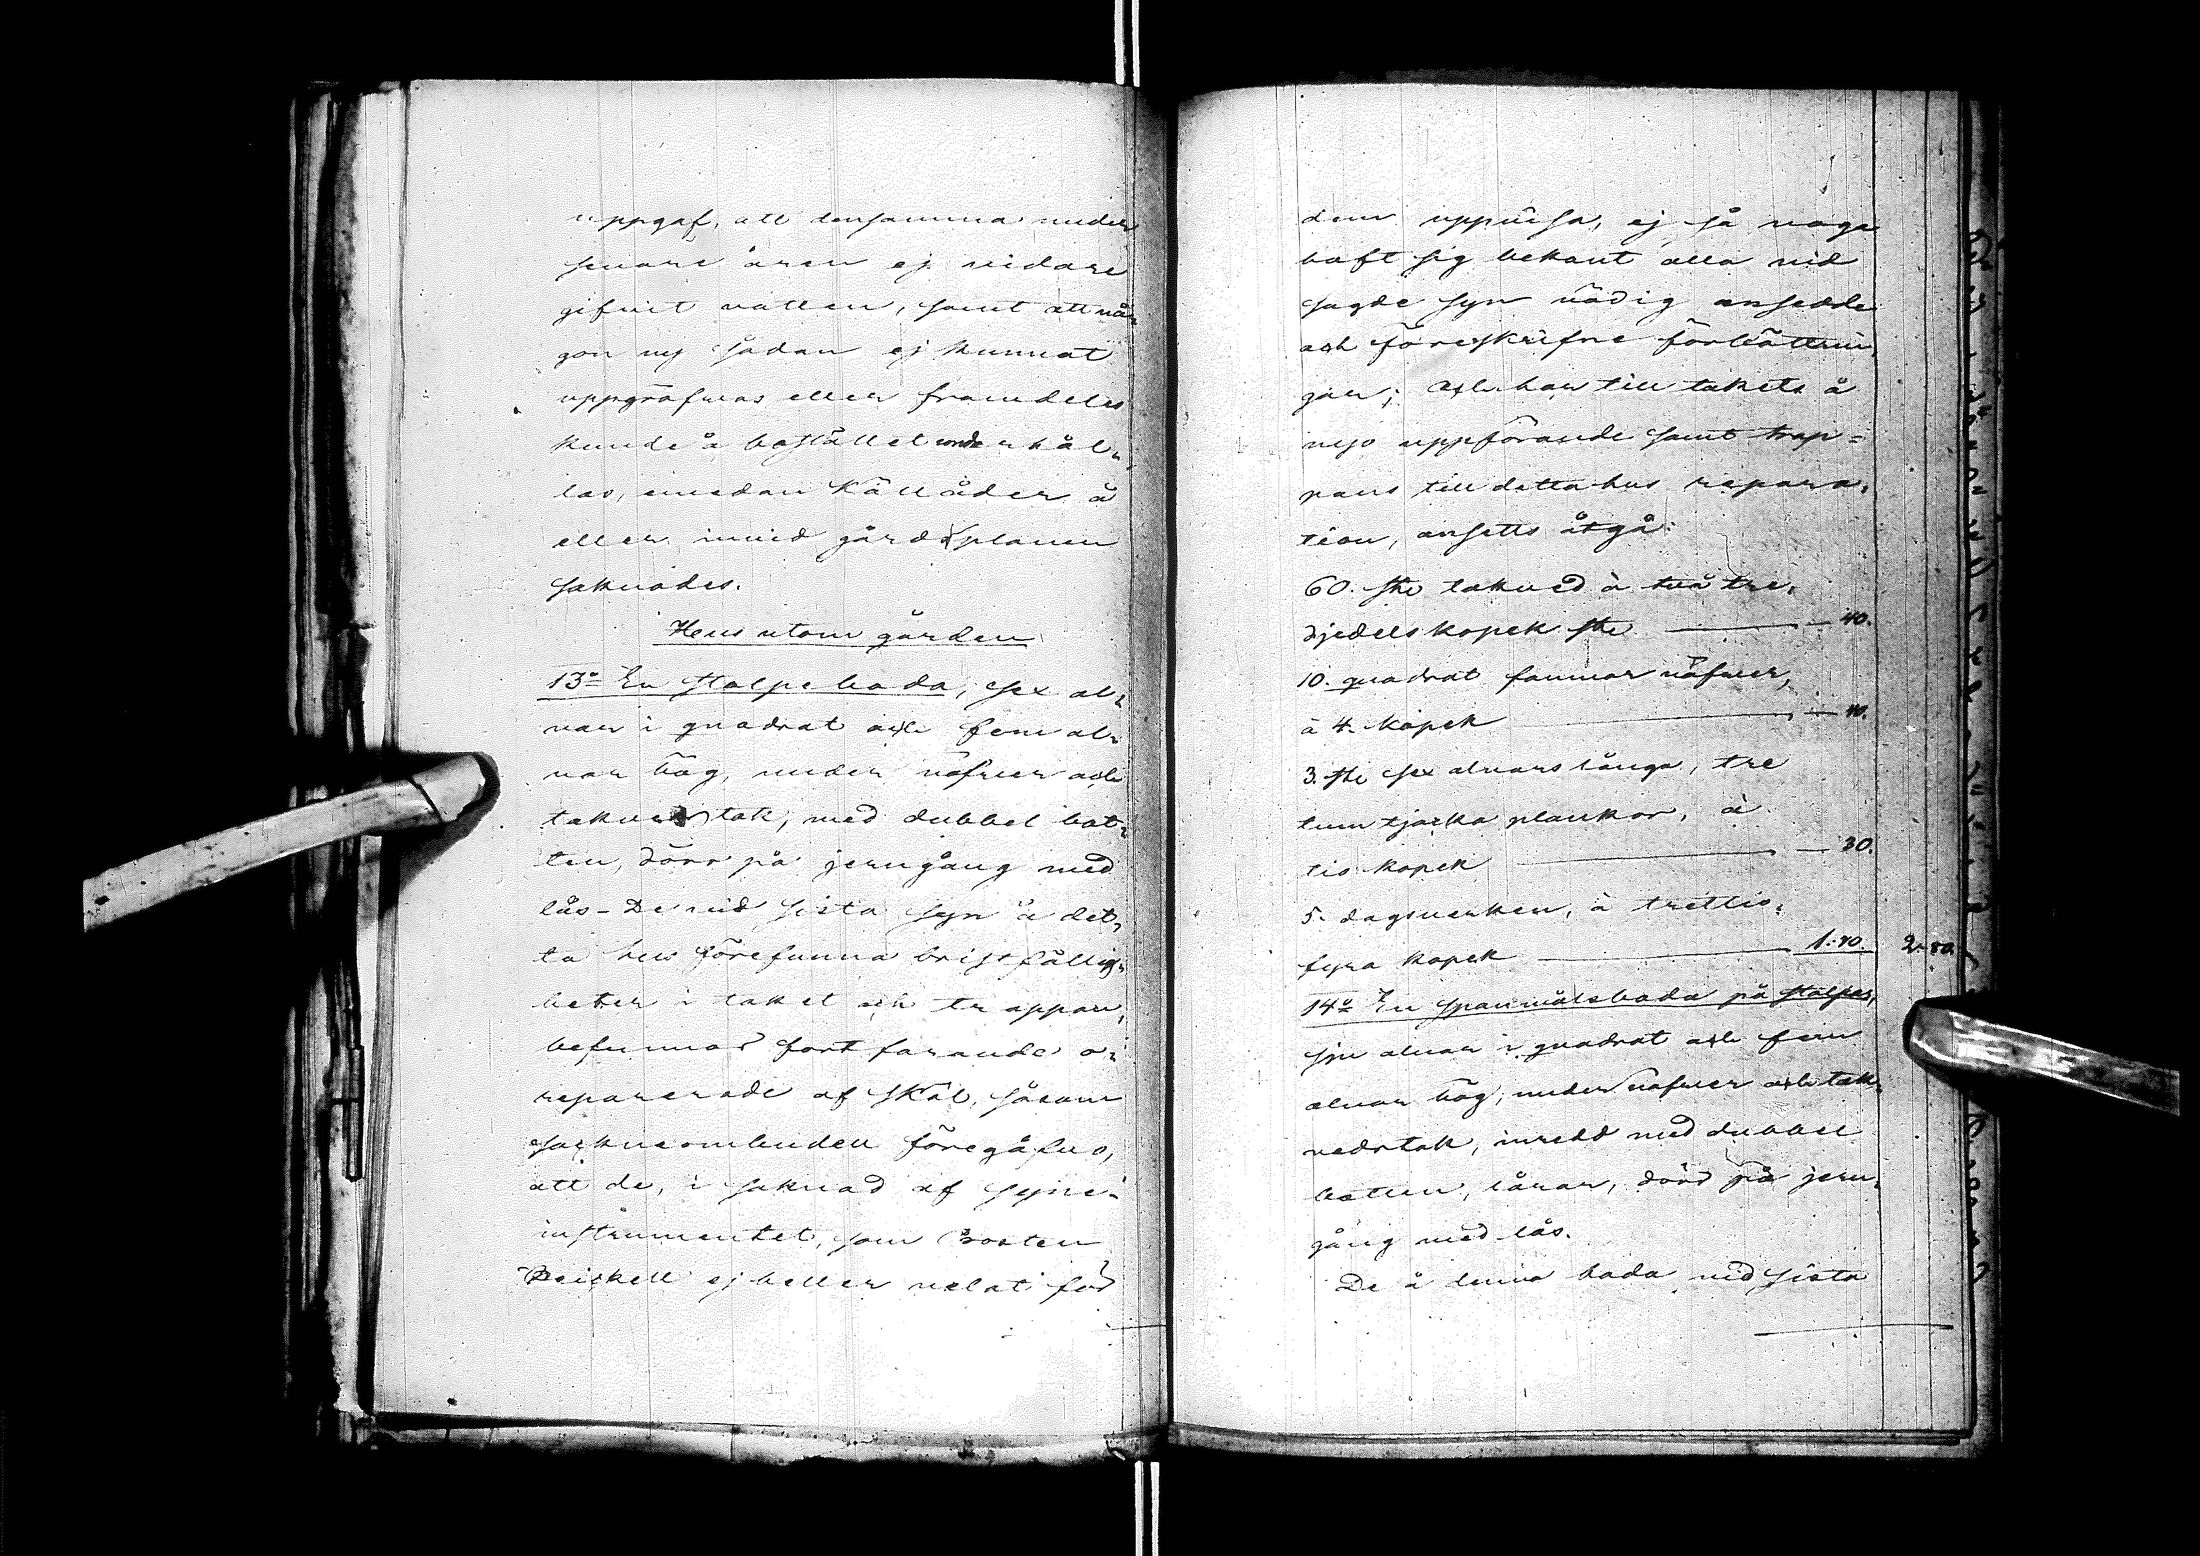 uppgaf, att densamma under
senare åren ej vidare
gifvit vatten, samt att nå-
gon ny sådan ej kunnat
uppgräfvas eller framdeles
kunde å bostället underhål-
las, emedan källåder å
eller invid gårdsplanen
saknades.
Hus utom gården
13o En stolpeboda, sex al-
nar i quadrat och fem al-
nar hög, under näfver och
takveds tak, med dubbel bot-
ten, dörr på jerngång med
lås - De vid sista syn å det-
ta hus förefunna bristfällig-
heter i taket och trappan,
befunnos fortfarande o-
reparerade af skäl, såsom
sockneombuden föregåfvo,
att de, i saknad af syne-
instrumentet, som Bosten
Heickell ej heller velat för
dem uppvisa, ej så noga
haft sig bekant alla vid
sagde syn nödig ansedde
och föreskrifne förbättrin-
gar; och har till takets å
nyo uppförande samt trap-
pans till detta hus repara-
tion, ansetts åtgå:
60. st. takved à två tre-
djedels kopek st. — 40.
10. quadrat famnar näfver,
à 4. kopek — 40.
3. st. sex alnars långa, tre
tum tjocka plankor, à
tio kopek — 30.
5. dagsverken, à trettio-
fyra kopek — 1.70. 2.80.
14o En spanmålsboda på stolpar,
sju alnar i quadrat och fem
alnar hög, under näfver och tak-
vedstak, inredd med dubbel
botten, lårar, dörr på jern-
gång med lås.
De å denna boda vid sista